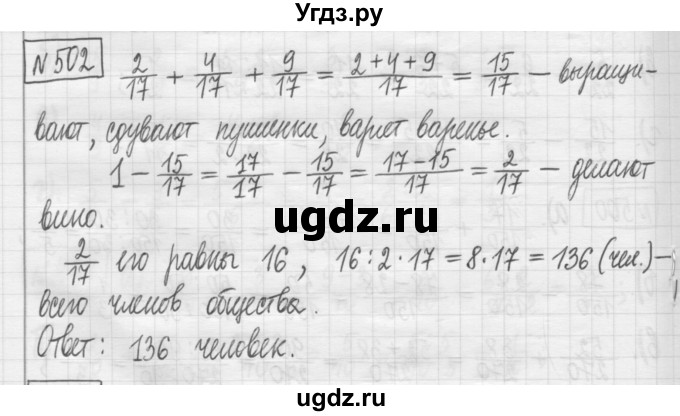 Угдз.ру
№502 2/17 + 4/17 + 9/17 = (2+4+9)/17 = 15/17 – выращи-
вают, сдувают пушинки, варят варенье.
1 – 15/17 = 17/17 – 15/17 = (17-15)/17 = 2/17 – делают
вино.
ugdz.ru
2/17 его равны 16, 16:2·17=8·17=136 (чел.)–
всего членов общества.
Ответ: 136 человек.
ugdz.ru